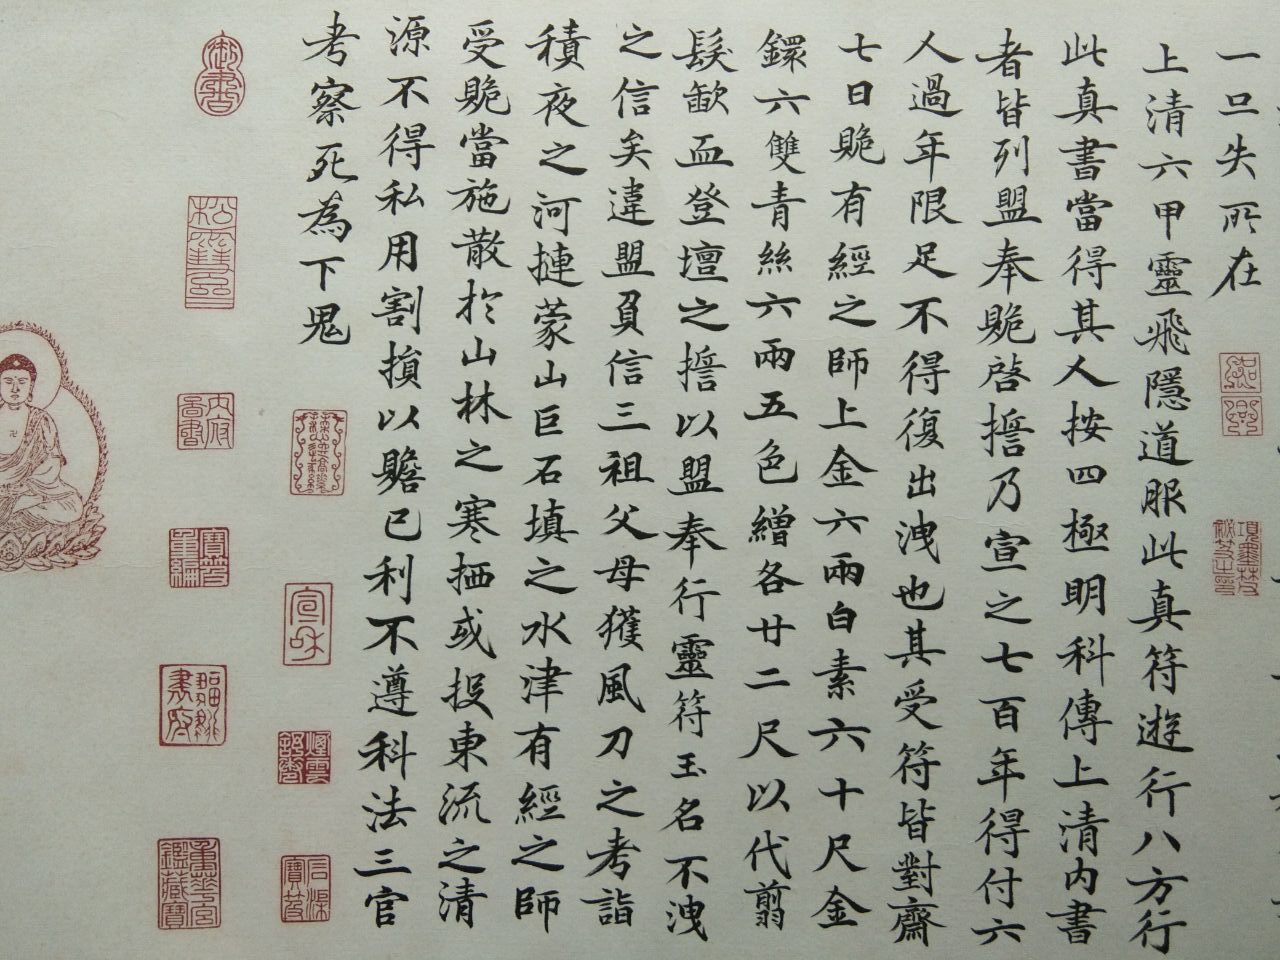 一旦失所在
上清六甲靈飛隱道服此真符遊行八方行
此真書當得其人按四極明科傳上清內書
者皆列盟奉貺啓擔乃宣之七百年得付六
人過年限足不得復出洩也其受符皆對齋
七日貺有經之師上金六兩白素六十尺金
鐶六雙青絲六兩五色繒各廿二尺以代翦
髮歃血登壇之擔以盟奉行靈符玉名不洩
之信矣違盟負信三祖父母獲風刀之考詣
積夜之河摙蒙山巨石填之水津有經之師
受貺當施散於山林之寒栖或投東流之清
源不得私用割損以贍己利不遵科法三官
考察死為下鬼
御書
內府
圖書
宣和
煙雲